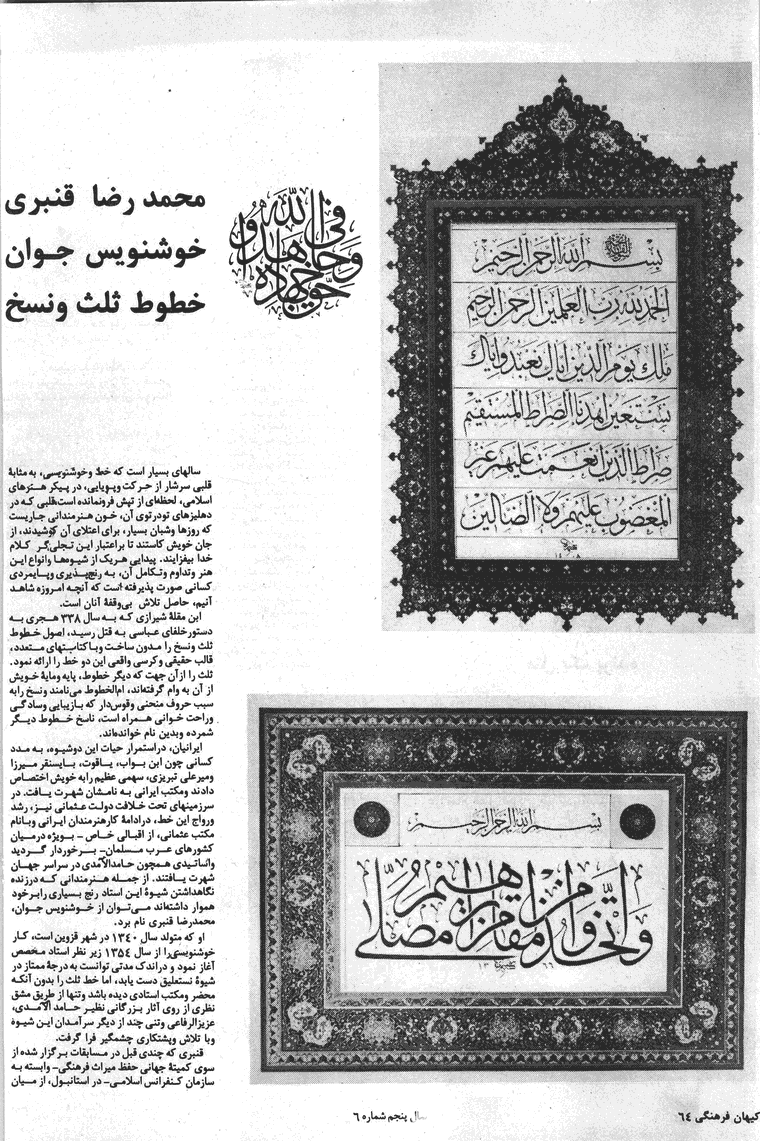 محمد رضا قنبری
خوشنویس جـوان
خطوط ثلث ونسخ
وجاهدوا فی الله حق جهاده
بسم الله الرحمن الرحیم
الحمد لله رب العلمین الرحمن الرحیم
ملك یوم الدین ایاك نعبد وایاك
نستعین اهدنا الصراط المستقیم
صراط الذین انعمت علیهم غیر
المغضوب علیهم ولا الضالین
سالهای بسیار است که خط وخوشنویسی، به مثابهٔ
قلبی سرشار از حرکت وپویایی، در پیکر هنرهای
اسلامی، لحظه‌ای از تپش فرونمانده است،قلبی که در
دهلیزهای تودرتوی آن، خون هنرمندانی جاریست
که روزها وشبان بسیار، برای اعتلای آن کوشیدند، از
جان خویش کاستند تا براعتبار این تجلی‌گر کلام
خدا بیفزایند. پیدایی هریک از شیوه‌ها وانواع این
هنر وتداوم وتکامل آن، به رنج‌پذیری وپایمردی
کسانی صورت پذیرفته است که آنچه امروزه شاهد
آنیم، حاصل تلاش بی‌وقفهٔ آنان است.
ابن مقلهٔ شیرازی که به سال ۳۳۸ هجری به
دستورخلفای عباسی به قتل رسید، اصول خطوط
ثلث ونسخ را مدون ساخت وباکتابتهای متعدد،
قالب حقیقی وکرسی واقعی این دو خط را ارائه نمود.
ثلث را ازآن جهت که دیگر خطوط، پایه ومایهٔ خویش
از آن به وام گرفته‌اند، ام‌الخطوط می‌نامند ونسخ رابه
سبب حروف منحنی وقوس‌دار که بازیبایی وسادگی
وراحت خوانی همراه است، ناسخ خطوط دیگر
شمرده وبدین نام خوانده‌اند.
ایرانیان، دراستمرار حیات این دوشیوه، به مدد
کسانی چون ابن بواب، یاقوت، بایسنقر میرزا
ومیرعلی تبریزی، سهمی عظیم رابه خویش اختصاص
دادند ومکتب ایرانی به نامشان شهرت یافت. در
سرزمینهای تحت خلافت دولت عثمانی نیز، رشد
ورواج این خط، درادامهٔ کارهنرمندان ایرانی وبانام
مکتب عثمانی، از اقبالی خاص - بویژه درمیان
کشورهای عرب مسلمان- برخوردار گردید
واساتیدی همچون حامدالآمدی در سراسر جهان
شهرت یافتند. از جمله هنرمندانی که درزنده
نگاهداشتن شیوهٔ این استاد رنج بسیاری رابرخود
هموار داشته‌اند می‌توان از خوشنویس جوان،
محمدرضا قنبری نام برد.
او که متولد سال ۱۳٤۰ در شهر قزوین است، کار
خوشنویسی‌را از سال ۱۳٥٤ زیر نظر استاد مخصص
آغاز نمود و دراندک مدتی توانست به درجهٔ ممتاز در
شیوهٔ نستعلیق دست یابد، اما خط ثلث را بدون آنکه
محضر ومکتب استادی دیده باشد وتنها از طریق مشق
نظری از روی آثار بزرگانی نظیر حامد الآمدی،
عزیزالرفاعی وتنی چند از دیگر سرآمدان این شیوه
وبا تلاش وپشتکاری چشمگیر فرا گرفت.
قنبری که چندی قبل در مسابقات برگزار شده از
سوی کمیتهٔ جهانی حفظ میراث فرهنگی- وابسته به
سازمان کنفرانس اسلامی- در استانبول، از میان
بسم الله الرحمن الرحیم
واتخذوا من مقام ابرهیم مصلی
سال پنجم شماره ٦
کیهان فرهنگی ٦٤